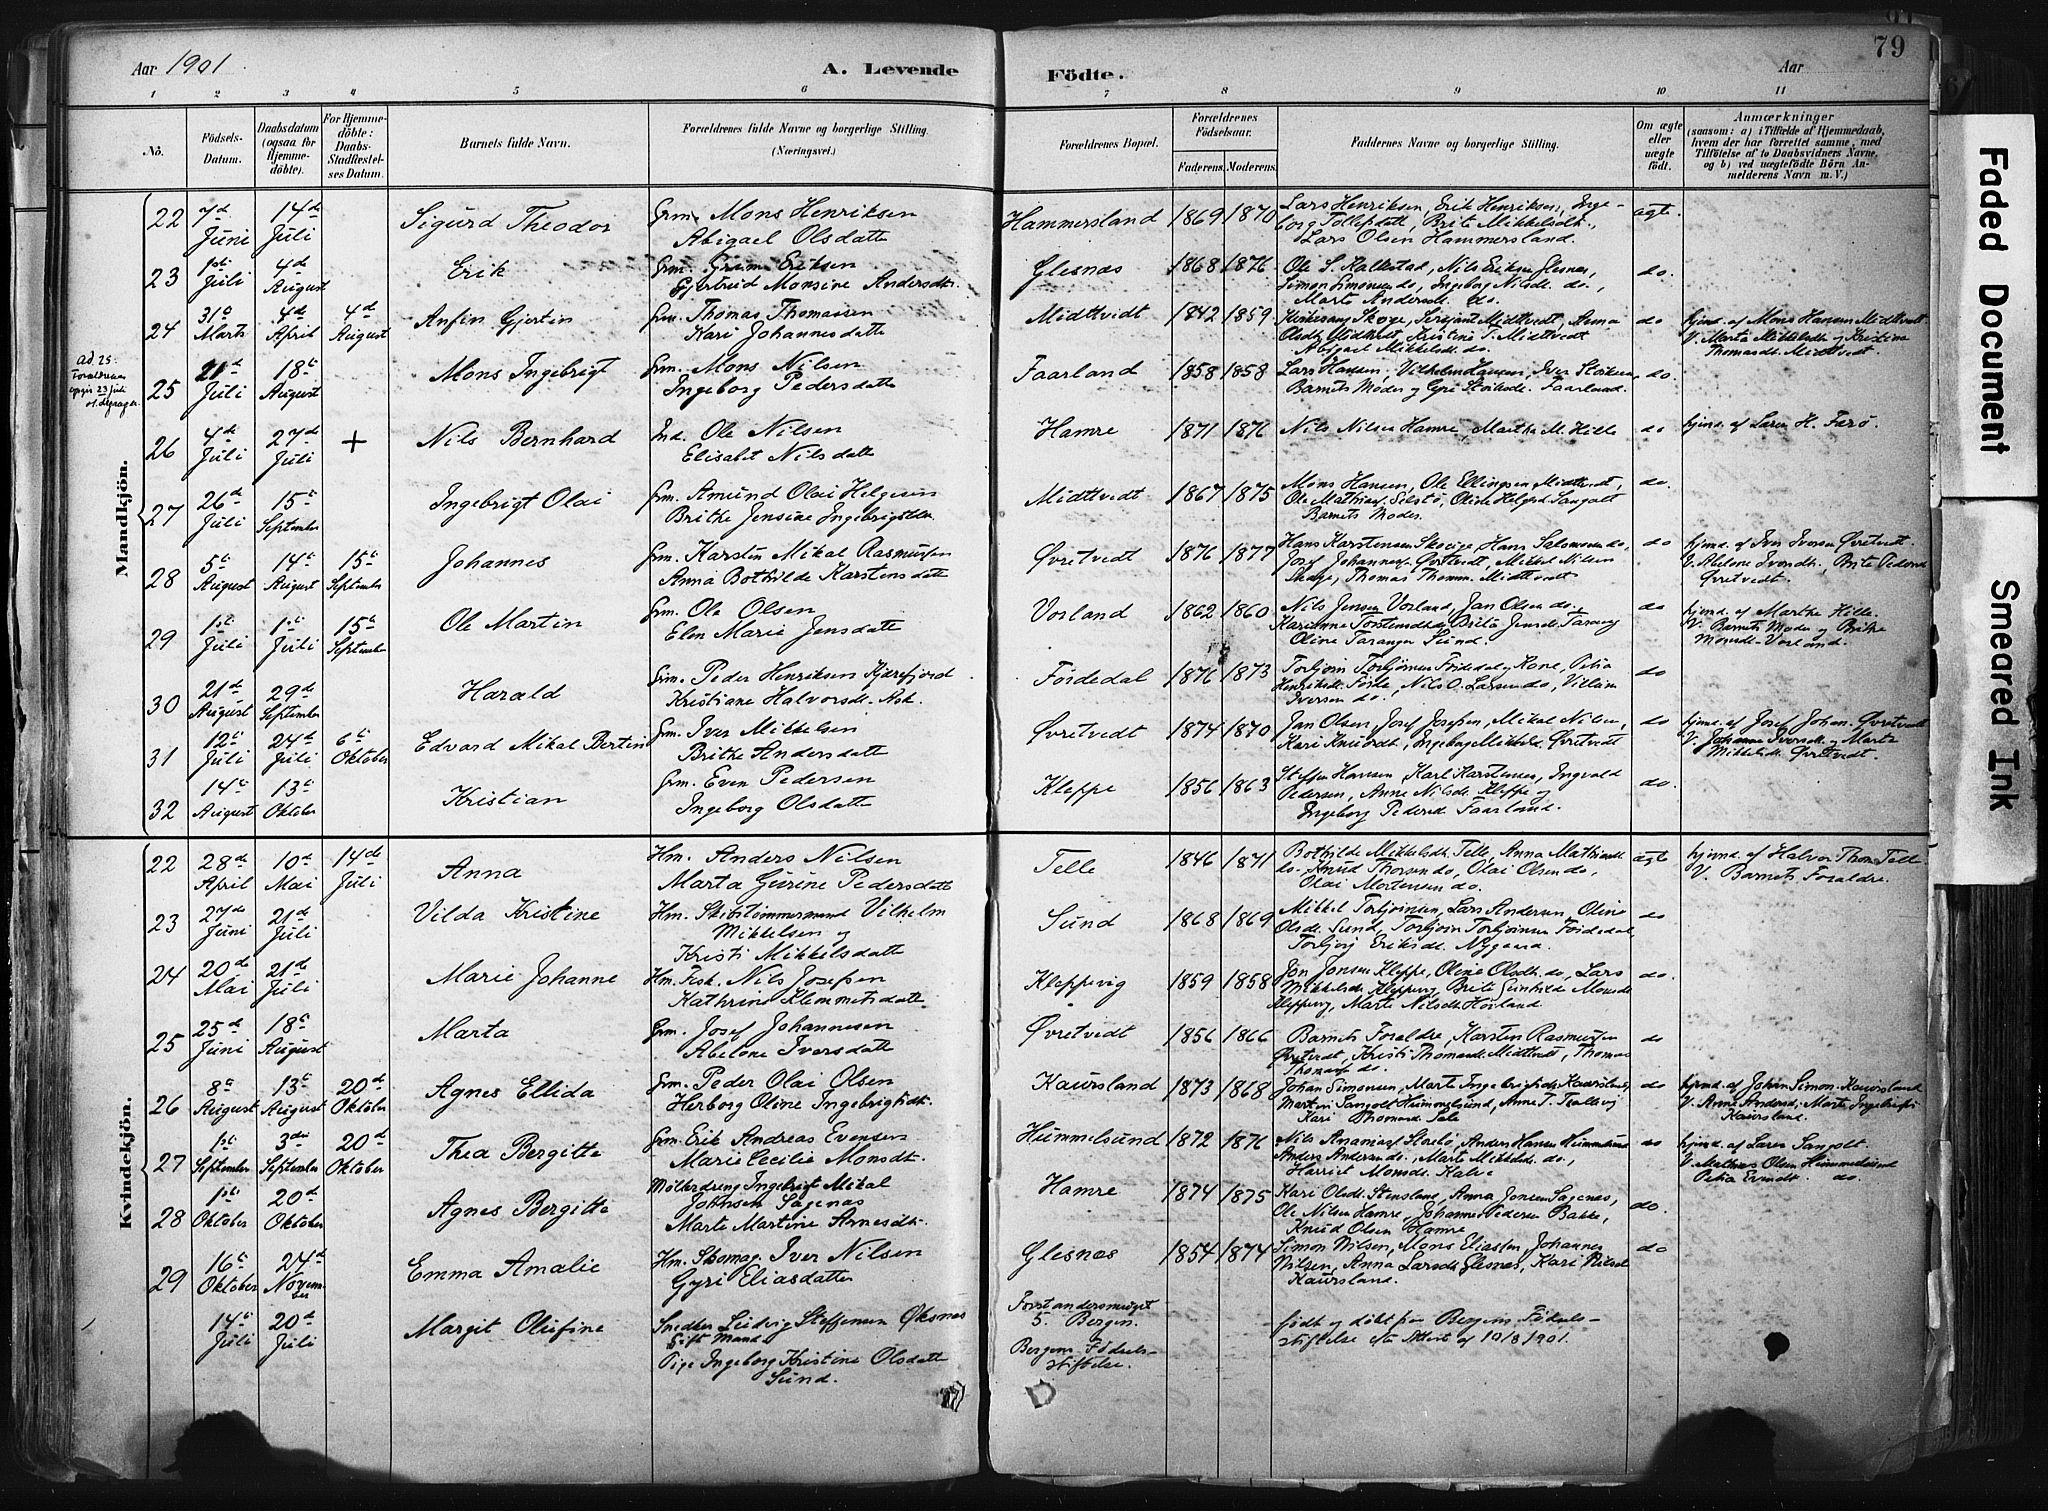 Aar 1901
A. Levende
Födte.
Aar
79
1 2 3 4 5 6 7 8 9 10 11
No.
Födsels-Datum.
Daabsdatum (ogsaa for Hjemmedöbte).
For Hjemmedöbte: Daabs-Stadfæstelses Datum.
Barnets fulde Navn.
Forældrenes fulde Navne og borgerlige Stilling.
(Næringsvei.)
Forældrenes Bopæl.
Forældrenes Födselsaar.
Faderens. Moderens.
Faddernes Navne og borgerlige Stilling.
Om ægte eller uægte födt.
Anmærkninger
(saasom: a) i Tilfælde af Hjemmedaab, hvem der har forrettet samme, med Tilföielse af to Daabsvidners Navne, og b) ved uægtefödte Börn Anmelderens Navn m. V.)
Mandkjön.
22 7de Juni 14de Juli Sigurd Theodor Grm. Mons Henriksen
Abigael Olsdatter Hammersland 1869 1870 Lars Henriksen, Erik Henriksen, Inge-
borg Tollefsdatt, Brite Mikkelsdt.,
Lars Olsen Hammersland. ægte.
23 1ste Juli 4de August Erik Grm. Grim Eriksen
Gjertrud Monsine Andersdt. Glesnæs 1868 1876 Ole S. Kalkestad, Nils Eriksen Glesnes,
Simon Simonsen do, Ingeborg Nilsdt. do.,
Marte Andersdt. do. do.
24 31te Marts 4de April 4de August Anfin Gjertin Grm. Thomas Thomassen
Kari Johannesdatter Midttvedt 1842 1859
Midttvedt, Kristine T. Midttvedt
Abigael Mikkelsdt. do. do hjemd. af Mons Hansen Midttvedt
V. Marta Mikkelsdt. og Kristine
Thomasdt. Midttvedt.
ad 25: Forældrene
25 21de Juli 18de August Mons Ingebrigt Grm. Mons Nilsen
Ingeborg Pedersdatter Faarland 1858 1858 Lars Hansen, Vilhelm Hansen, Iver
Barnets Moder og Gyri Faarland. do.
26 4de Juli 27de Juli + Nils Bernhard Ind. Ole Nilsen
Elisabet Nilsdatter Hamre 1871 1876 Nils Nilsen Hamre, Marthe M. Hille do hjemd. af Laren H. Farö.
27 26de Juli 15de September Ingebrigt Olai Grm. Amund Olai Helgesen
Brithe Jensine Ingebrigtsdt. Midttvedt 1867 1875 Mons Hansen, Ole Ellingsen Midttvedt,
Ole Mathias Selstö, Oline Helgesd. Sangolt
Barnets Moder. do.
28 5te August 14de August 15de September Johannes Grm. Karsten Mikal Rasmussen
Anna Bothilde Karstensdatt Øvretvedt 1876 1877 Hans Karstensen Skoge, Hans Salomonsen do,
Josef Johannes. Øvretvedt, Mikkel Nilsen
Skoge, Thomas Thomm. Midttvedt. do hjemd. af Iver Iversen Øvretvedt.
V. Abelone Iversdt., Brite Pedersd.
Øvretvedt.
29 1ste Juli 1ste Juli 15de September Ole Martin Grm. Ole Olsen
Elen Marie Jensdatt Vorland 1862 1860 Nils Jensen Vorland, Jan Olsen do.,
Karianne Torstensdt. do Brita Jensdt.
Oline Taranger Sund. do hjemd. af Marthe Hille.
V. Barnets Moder og Brite
Monsdt. Vorland.
30 21de August 29de September Harald Grm. Peder Henriksen Kjærefjord
Kristiane Halvorsdt. Ask. Fördedal 1876 1873 Torbjörn Torbjörnsen Fördedal og Kone, Petra
Henriksdt. Förde, Nils O. Larsen do, Villum
Iversen do. do
31 12te Juli 24de Juli 6te Oktober Edvard Mikal Bertin Grm. Iver Mikkelsen
Brithe Andersdatter Øvretvedt 1874 1870 Jan Olsen, Josef Josefsen, Mikal Nilsen,
Kari Knudsdt., Ingeborg Mikkelsd. Øvretvedt do hjemd. af Josef Johan. Øvretvedt
V. Johanne Iversdt. og Marta
Mikkelsdt. Øvretvedt.
32 14de August 13de Oktober Kristian Grm. Even Pedersen
Ingeborg Olsdatter Kleppe 1856 1863 Steffen Hansen, Karl Karstensen, Ingvald
Pedersen, Anne Nilsdt. Kleppe og
Ingeborg Pedersd. Faarland. do.
Kvindekjön.
22 28de April 10de Mai 14de Juli Anna Hm. Anders Nilsen
Marta Gurine Pedersdatter Telle 1846 1871 Bothilde Mikkelsdt. Telle, Anna Mathiasdt
do. Knud Thorsen do, Olai Olsen do,
Olai Mortensen do. ægte hjemd. af Halvor Thom. Telle
V. Barnets Foraldre.
23 27de Juni 21de Juli Vilda Kristine Hm. Skibstömmermand Vilhelm
Mikkelsen og
Kristi Mikkelsdatter Sund 1868 1869 Mikkel Torbjörnsen, Lars Andersen, Oline
Olsdt. Sund, Torbjörn Torbjörnsen Fördedal,
Torbjörg Eriksdt. Nygaard. do
24 20de Mai 21de Juli Marie Johanne Hm. Fisk. Nils Josefsen
Kathrine Klemmetsdatter Kleppevig 1859 1858 Jön Jonsen Kleppe, Oline Olsdt. do, Lars
Mikkelsdt. Kleppevig, Brite Monsdt
Kleppevig, Marte Nilsdt. Horland. do.
25 25de Juni 18de August Marta Grm. Josef Johannesen
Abelone Iversdatt Øvretvedt 1856 1866 Barnets Foraldre, Karsten Rasmussen
Øvretvedt, Kristi Thomasdt. Midttvedt, Thomas
Thomass. do. do
26 8de August 13de August 20de Oktober Agnes Ellida Grm. Peder Olai Olsen
Herborg Oline Ingebrigtsdt. Kaursland 1873 1868 Johan Simonsen, Marte Ingebrigtsdt. Kaursland,
Martin Sangolt Hummelsund, Anne T.
Kari Thomasd. Tele do hjemd. af Johan Simon. Kaursland
V. Anne Andersd., Marte Ingebrigts
Kaursland.
27 1ste September 3die September 20de Oktober Thea Bergitte Grm. Erik Andreas Evensen
Marie Cecilie Monsdt. Hummelsund 1872 1876 Nils Storebö, Anders Hansen Hummelsund
Anders Andersen do., Marte Mikkelsd. do.,
Harriet Monsdt. Kalve do hjemd. af Laren Sangolt
V. Mathias Olsen Hummelsund
Petra Evensdt. do.
28 1ste Oktober 20de Oktober Agnes Bergitte Möllerdreng Ingebrigt Mikal
Johnsen Sagenæs
Marte Martine Arnesdt. Hamre 1874 1875 Kari Olsdt. Stensland, Anna Jonsen Sagenæs,
Ole Nilsen Hamre, Johannes Pedersen Bakke,
Knud Olsen Hamre do.
29 16de Oktober 24de November Emma Amalie Hm. Skomag. Iver Nilsen
Gyri Eliasdatter Glesnæs 1854 1874 Simon Nilsen, Mons Eliassen, Johannes
Nilsen, Anna Larsdt. Glesnæs, Kari Nilsdt
Kaursland. do
14de Juli 20de Juli Margit Olufine Snedker Ludvig Steffensen Øksnes
Gift Mand.
Pige Ingeborg Kristine Olsdatter
Sund. Forstandersmuget
5. Bergen.
Bergens Födsels-
stiftelse. födt og döbt paa Bergens Födsels-
stiftelse efter Attest af 10/8 1901.
Faded Document
Smeared Ink